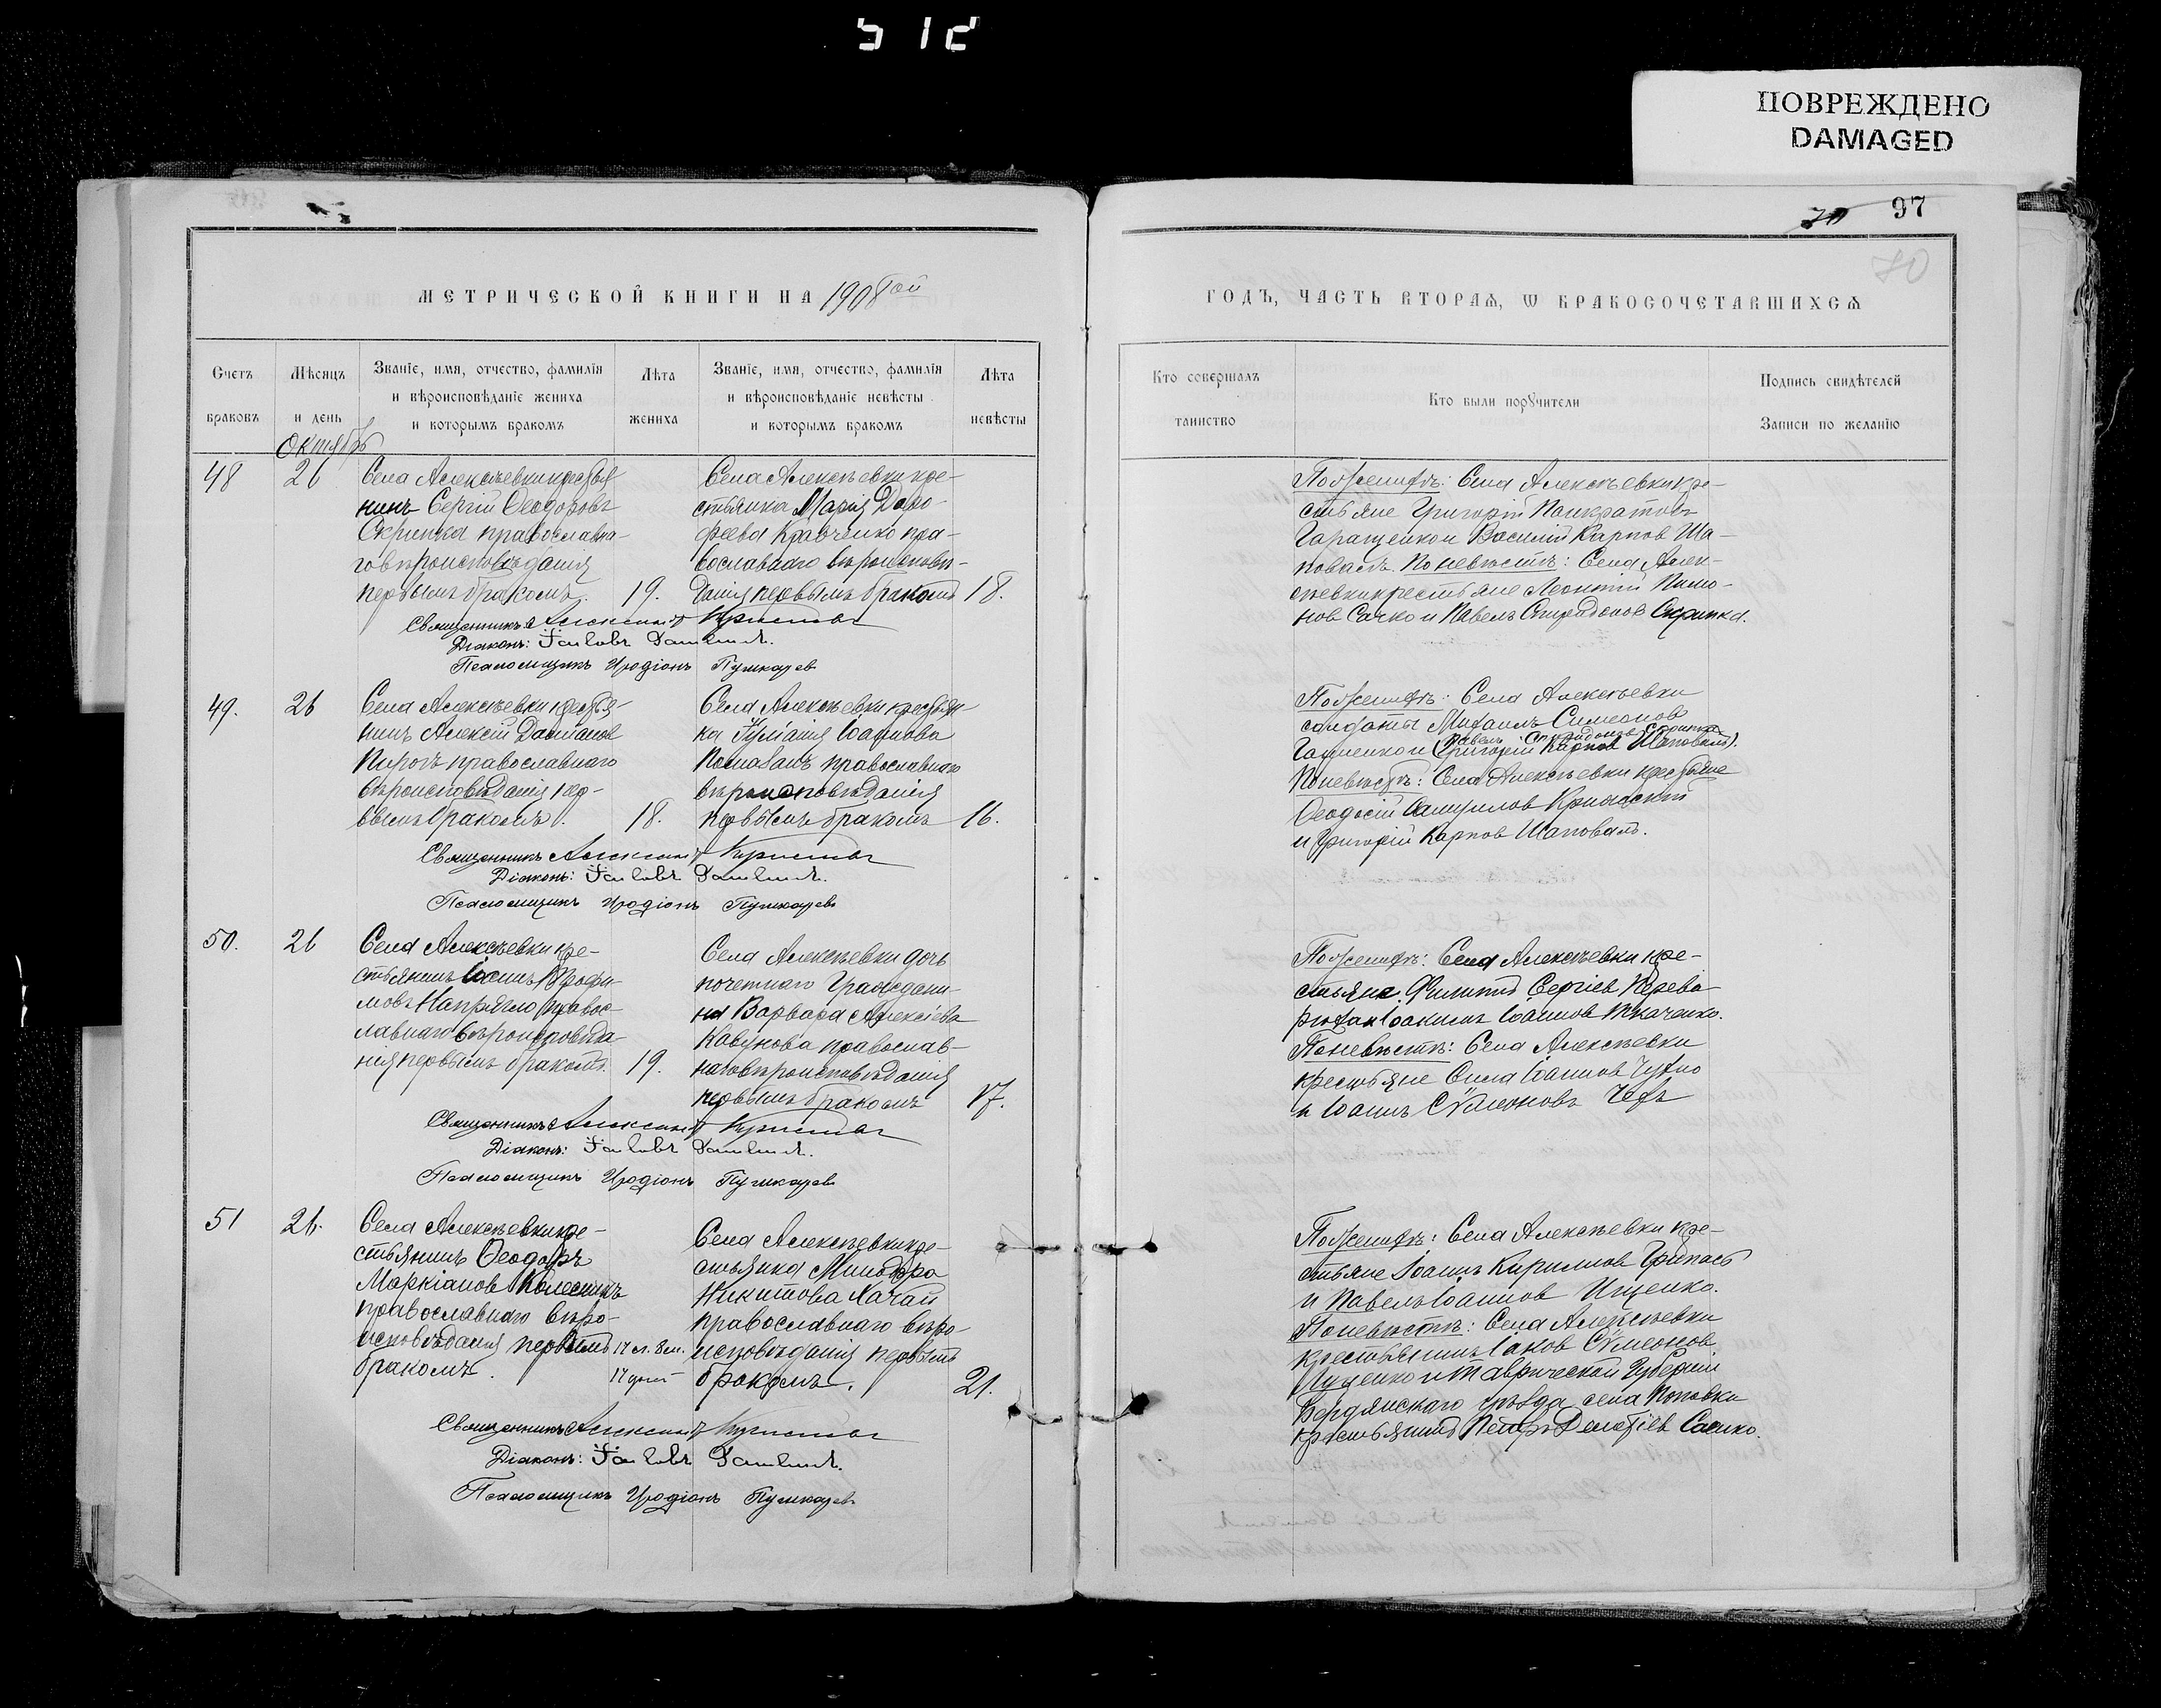 512
ПОВРЕЖДЕНО
DAMAGED
97
70
70
МЕТРИЧЕСКОЙ КНИГИ НА 1908гой
ГОДЪ, ЧАСТЬ ВТОРАѦ, Ѡ БРАКОСОЧЕТАВШИХСѦ
Счетъ браковъ
Мѣсяцъ и день
Званіе, имя, отчество, фамилія
и вѣроисповѣданіе жениха
и которымъ бракомъ
Лѣта жениха
Званіе, имя, отчество, фамилія
и вѣроисповѣданіе невѣсты
и которымъ бракомъ
Лѣта невѣсты
Кто совершалъ таинство
Кто были порꙋчители
Подпись свидѣтелей
Записи по желанію
Октябрь
48
26
Села Алексѣевки крестья
нинъ Сергій Ѳеодоровъ
Скрипка православна-
го вѣроисповѣданія
первымъ бракомъ.
19.
Села Алексѣевки кре-
стьянка Марія Доро-
феева Кравченко пра-
вославнаго вѣроисповѣ-
данія первымъ бракомъ
18.
Священникъ
Діаконъ: Іаковъ
Псаломщикъ Иродіонъ Пушкарев
По женихѣ: Села Алексѣевки кре-
стьяне Григорій Панкратовъ
Гаращенко и Василій Карпов Ша-
повалъ. По невѣстѣ: Села Алек-
сѣевки крестьяне Леонтій
нов Сачко и Павелъ Спиридонов Скрипка.
49.
26
Села Алексѣевки крестья-
нинъ Алексій Даміанов
Пирогъ православнаго
вѣроисповѣданія пер-
вымъ бракомъ.
18.
Села Алексѣевки крестьян-
ка Іуліанія
православнаго
вѣроисповѣданія
первымъ бракомъ
16.
Священникъ
Діаконъ: Іаковъ
Псаломщикъ Иродіонъ Пушкаревъ
По женихѣ: Села Алексѣевки
солдаты Михаилъ Симеонов
Павелъ Спиридоновъ Скрипка
и (Григорій Карпов Шаповалъ).
По невѣстѣ: Села Алексѣевки крестьяне
Ѳеодосій Самуилов
и Григорій Карпов Шаповалъ.
50.
26
Села Алексѣевки кре-
стьянинъ Іоаннъ Трофи-
мовъ правос-
лавнаго вѣроисповѣда-
нія первымъ бракомъ.
19.
Села Алексѣевки дочь
почетнаго граждани-
на Варвара Алексіева
Кавунова православ-
наго вѣроисповѣданія
первымъ бракомъ
17.
Священникъ
Діаконъ: Іаковъ
Псаломщикъ Иродіонъ Пушкаревъ
По женихѣ: Села Алексѣевки кре-
стьяне Филиппъ Сергіев
Іоакимъ Іоаннов Ткаченко.
По невѣстѣ: Села Алексѣевки
крестьяне Сила Іоаннов
и Іоаннъ Сѵмеоновъ
51
26.
Села Алексѣевки кре-
стьянинъ Ѳеодоръ
Маркіанов Колесникъ
православнаго вѣро-
исповѣданія первымъ
бракомъ.
17 л. 8 м.
17 дней
Села Алексѣевки кре-
стьянка Минодора
Никитова
православнаго вѣро-
исповѣданія первымъ
бракомъ.
21.
Священникъ
Діаконъ: Іаковъ
Псаломщикъ Иродіонъ Пушкаревъ
По женихѣ: Села Алексѣевки кре-
стьяне Іоаннъ Кириллов
и Павелъ Іоаннов Ищенко.
По невѣстѣ: Села Алексѣевки
крестьянинъ Іаков Сѵмеонов
Ищенко и Таврической Губерніи
Бердянскаго уѣзда села Поповки
крестьянинъ Петръ